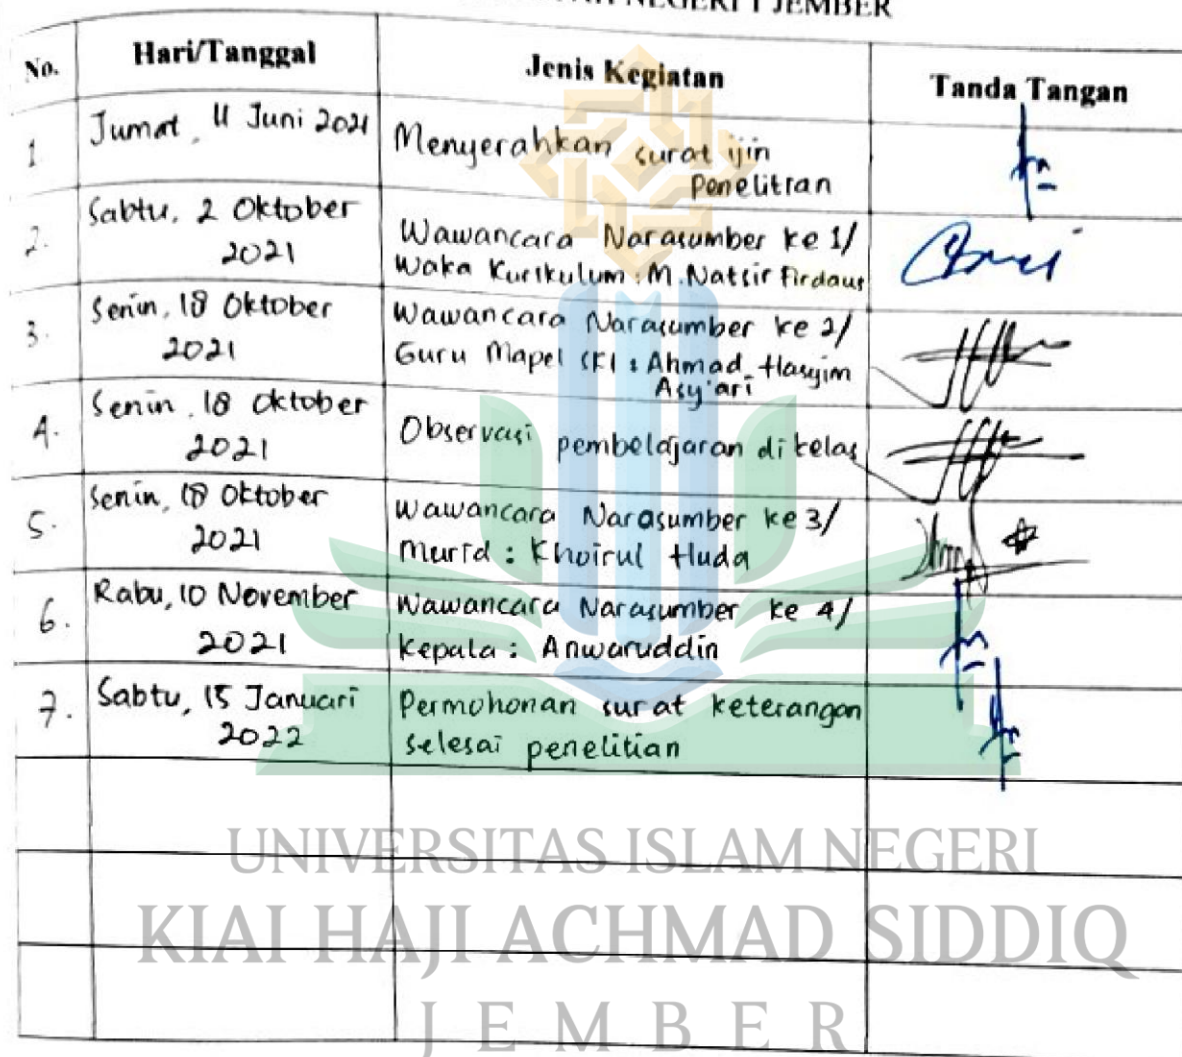 NEGERI 1 JEMBER
No. Hari/Tanggal Jenis Kegiatan Tanda Tangan
1 Jumat, 11 Juni 2021 Menyerahkan surat ijin
Penelitian
2. Sabtu, 2 Oktober
2021
Wawancara Narasumber ke 1/
Waka Kurikulum : M. Natsir Firdaus
3. Senin, 18 Oktober
2021
Wawancara Narasumber ke 2/
Guru Mapel SKI : Ahmad Hasyim
Asy'ari
4. Senin, 18 Oktober
2021
Observasi pembelajaran di kelas
5. Senin, 18 Oktober
2021
Wawancara Narasumber ke 3/
Murid : Khoirul Huda
6. Rabu, 10 November
2021
Wawancara Narasumber ke 4/
Kepala : Anwaruddin
7. Sabtu, 15 Januari
2022
Permohonan surat keterangan
selesai penelitian
UNIVERSITAS ISLAM NEGERI
KIAI HAJI ACHMAD SIDDIQ
JEMBER